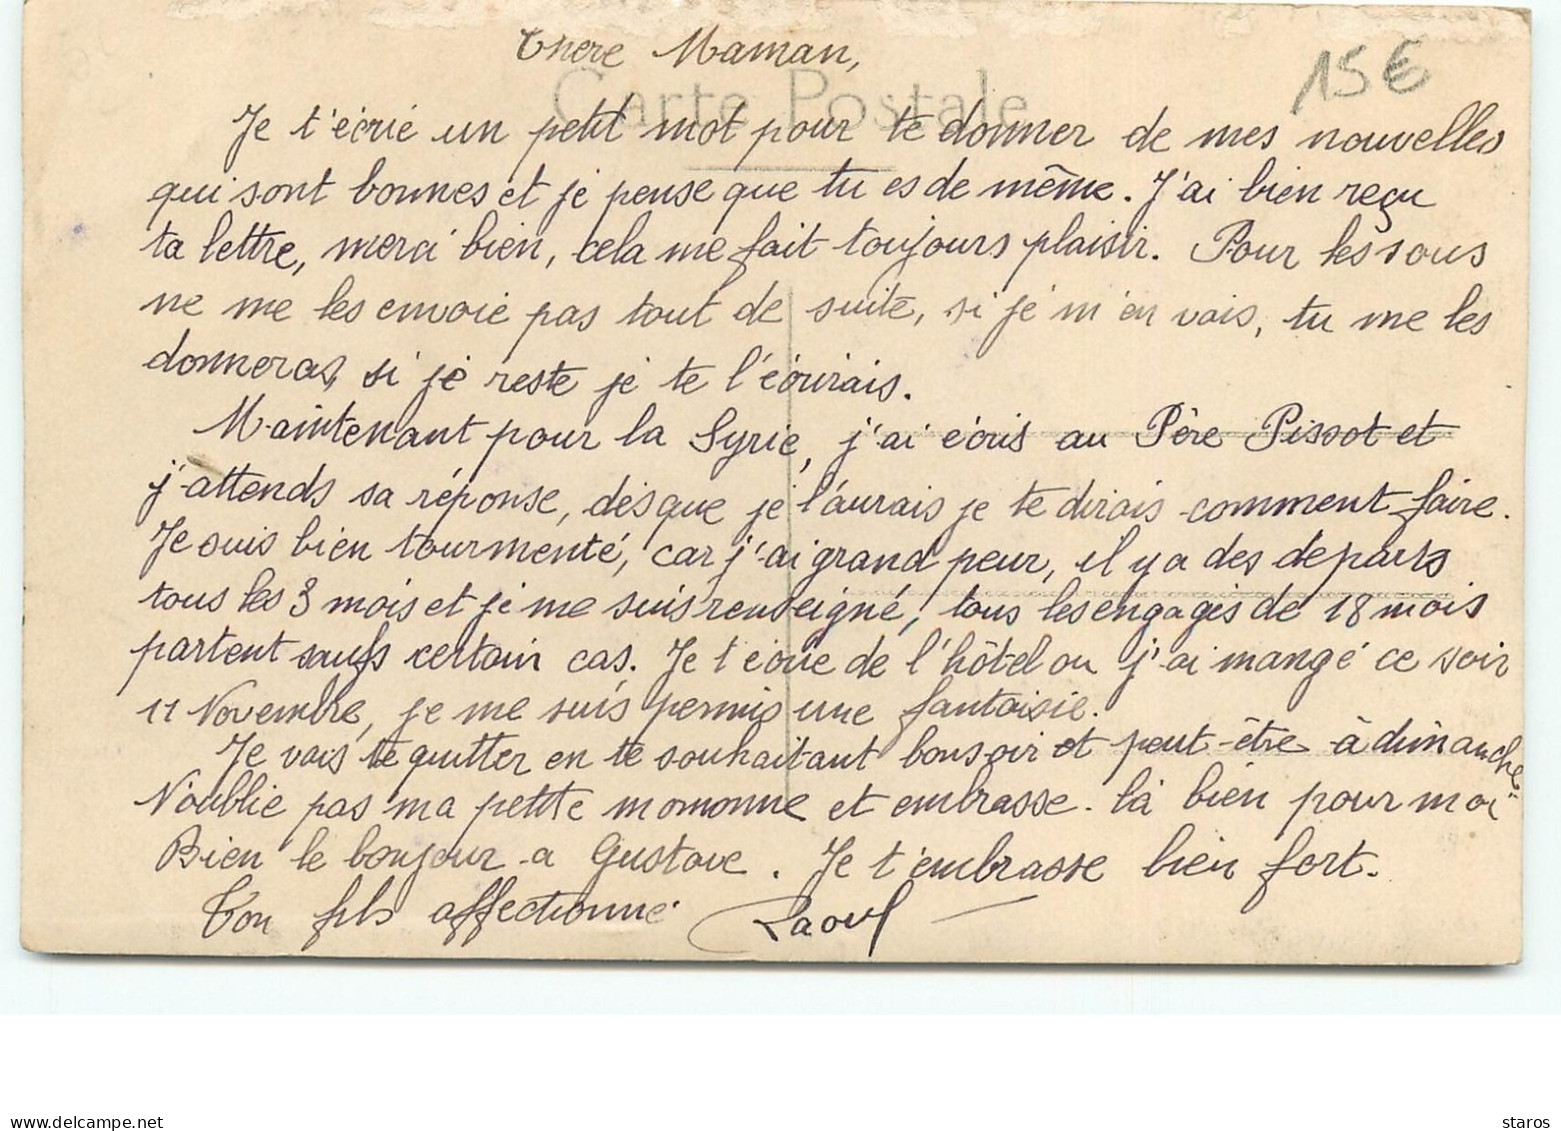 Chere Maman,
15€
Carte Postale
Je t'écrie un petit mot pour te donner de mes nouvelles
qui sont bonnes et je pense que tu es de même. J'ai bien reçu
ta lettre, merci bien, cela me fait toujours plaisir. Pour les sous
ne me les envoie pas tout de suite, si je m'en vais, tu me les
donneras, si je reste je te l'écrirais.
Maintenant pour la Syrie, j'ai écris au Père Pissot et
j'attends sa réponse, dès que je l'aurais je te dirais comment faire.
Je suis bien tourmenté, car j'ai grand peur, il y a des departs
tous les 3 mois et je me suis renseigné, tous les engagés de 18 mois
partent saufs certain cas. Je t'écrie de l'hôtel ou j'ai mangé ce soir
11 Novembre, je me suis permis une fantaisie.
Je vais te quitter en te souhaitant bonsoir et peut-être à dimanche
N'oublie pas ma petite momonne et embrasse-la bien pour moi
Bien le bonjour a Gustave. Je t'embrasse bien fort.
Ton fils affectionné Raoul
delcampe.net
staros